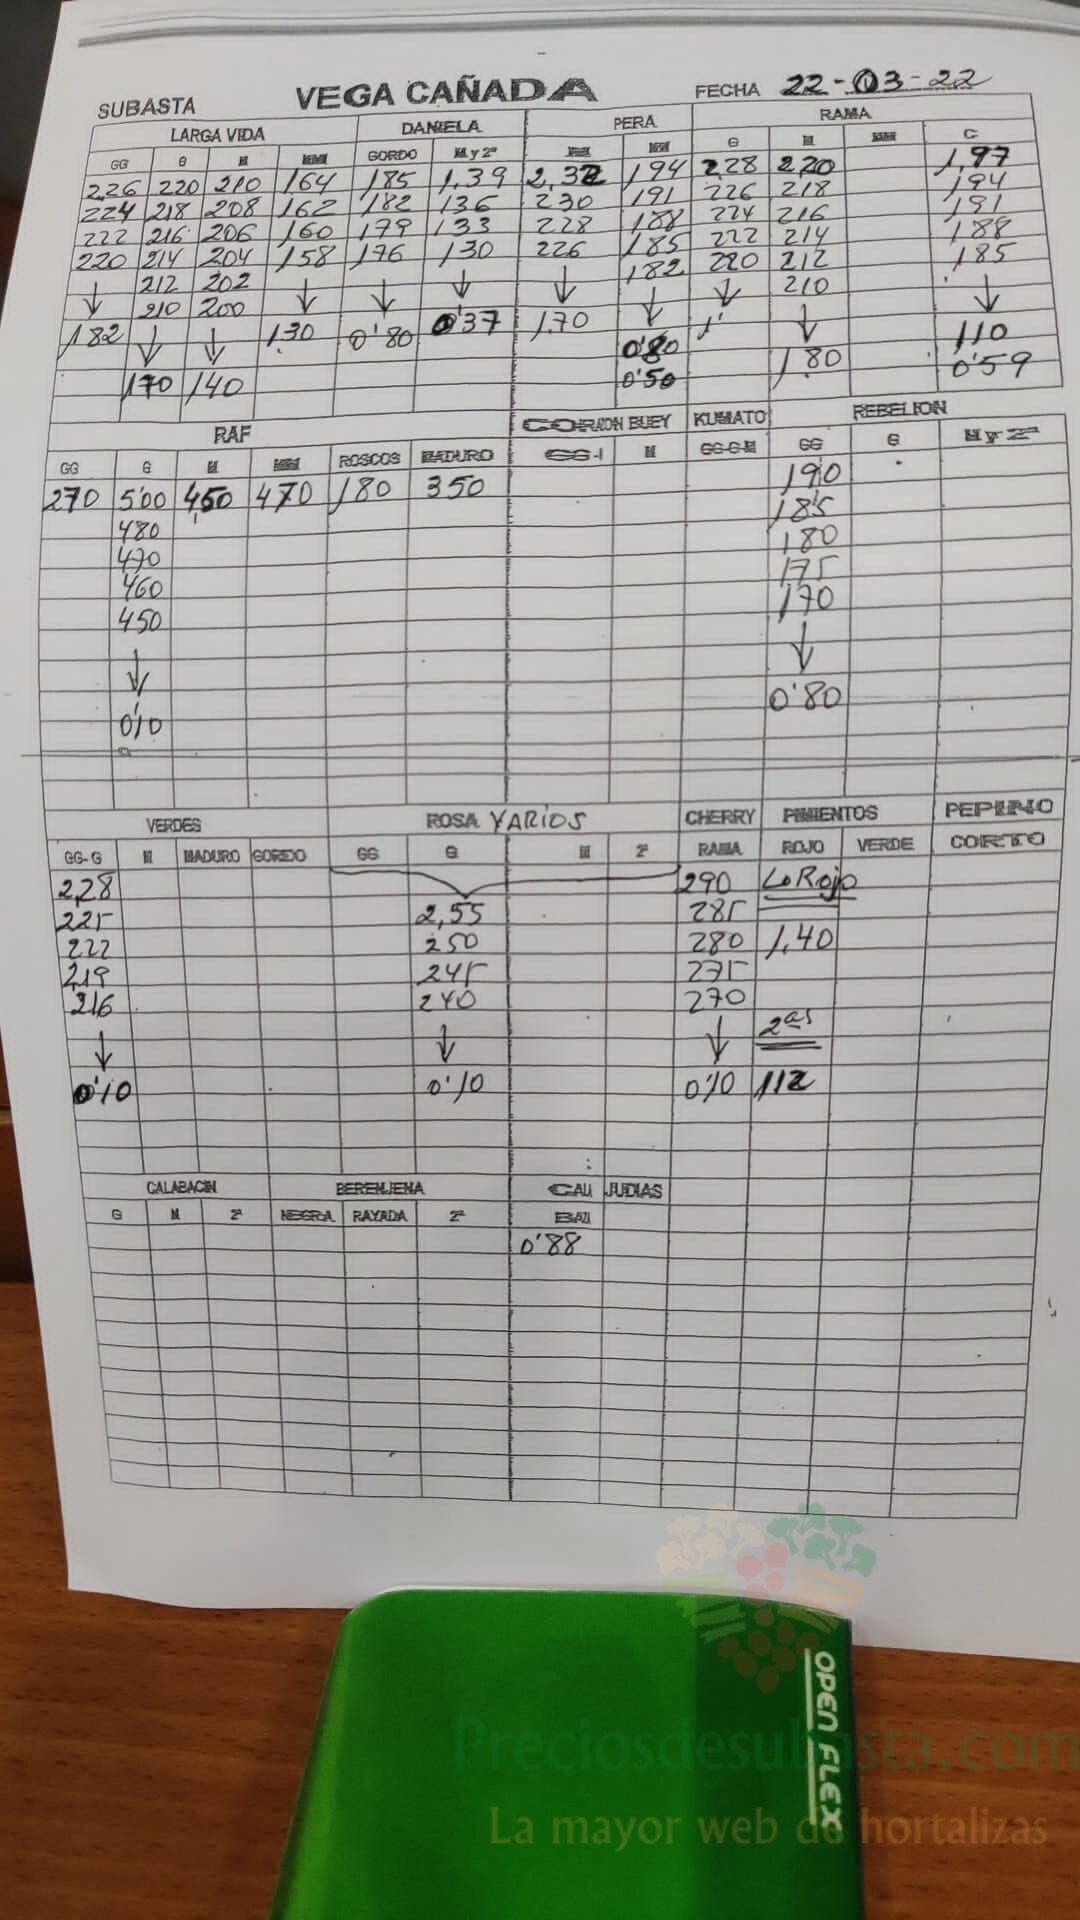 SUBASTA VEGA CAÑADA FECHA 22-03-22
LARGA VIDA DANIELA PERA RAMA
GG G M MM GORDO M y 2ª MM G M MM C
2,26 220 210 164 185 1,39 2,32 194 2,28 220 1,97
224 218 208 162 182 136 230 191 226 218 194
222 216 206 160 179 133 228 188 224 216 191
220 214 204 158 176 130 226 185 222 214 188
↓ 212 202 ↓ ↓ ↓ ↓ 182 220 212 185
210 200 ↓ ↓ 210 ↓
182 ↓ ↓ 1.30 0'80 0'37 1.70 ↓ 110
170 140 0'80 1.80 0'59
0'50
RAF CORAZON BUEY KUMATO REBELION
GG G M MM ROSCOS MADURO GG-I M GG-G-M GG G M y 2ª
270 5'00 450 470 180 350 190
480 185
470 180
460 175
450 170
↓ ↓
0'10 0'80
VERDES ROSA VARIOS CHERRY PIMIENTOS PEPINO
GG-G M MADURO GORDO GG G M 2ª RAMA ROJO VERDE CORTO
2,28 290 Lo Rojo
225 2,55 285
222 250 280 1,40
2,19 245 275
216 240 270
↓ ↓ ↓ 2ªs
0'10 0'10 0'10 112
CALABACIN BERENJENA CALI JUDIAS
G M 2ª NEGRA RAYADA 2ª
0'88
OPEN FLEX
Preciosdesubasta.com
La mayor web de hortalizas